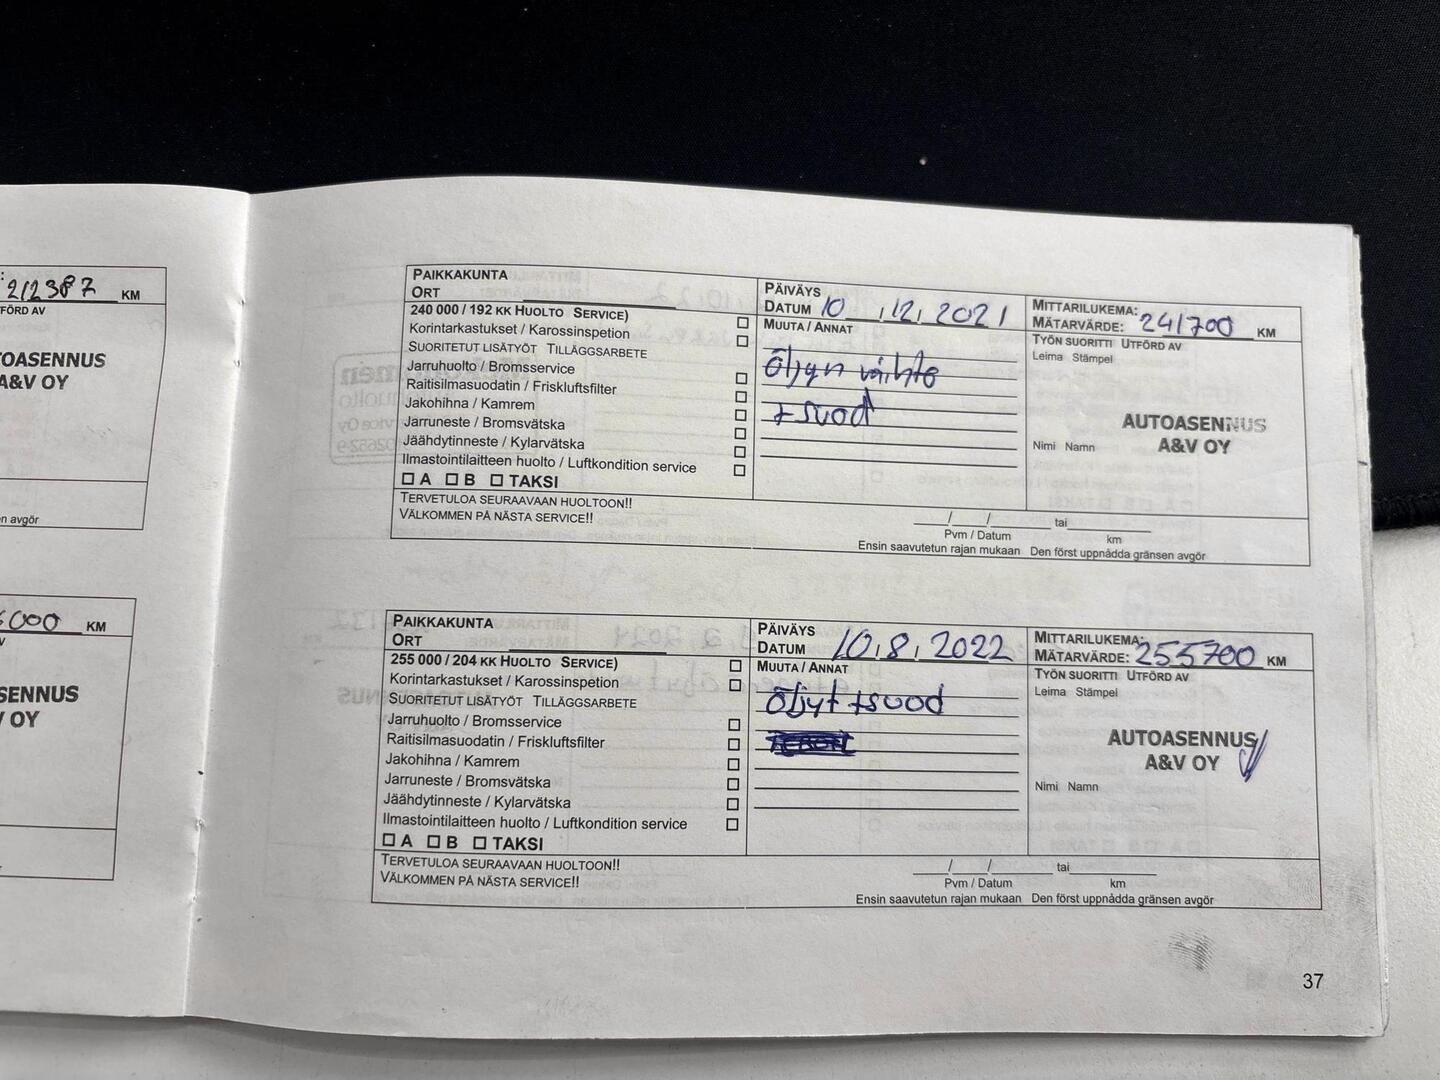 212387 KM
FÖRD AV
TOASENNUS
A&V OY
en avgör
6000 KM
SENNUS
OY
PAIKKAKUNTA
ORT
PÄIVÄYS
DATUM 10 . 12. 2021
MITTARILUKEMA:
MÄTARVÄRDE: 241700 KM
240 000 / 192 KK HUOLTO SERVICE)
Korintarkastukset / Karossinspetion
SUORITETUT LISÄTYÖT TILLÄGGSARBETE
Jarruhuolto / Bromsservice
Raitisilmasuodatin / Friskluftsfilter
Jakohihna / Kamrem
Jarruneste / Bromsvätska
Jäähdytinneste / Kylarvätska
Ilmastointilaitteen huolto / Luftkondition service
A B TAKSI
MUUTA / ANNAT
öljyn vaihto
+ suod
TYÖN SUORITTI UTFÖRD AV
Leima Stämpel
AUTOASENNUS
A&V OY
Nimi Namn
TERVETULOA SEURAAVAAN HUOLTOON!!
VÄLKOMMEN PÅ NÄSTA SERVICE!!
/ / tai
Pvm / Datum km
Ensin saavutetun rajan mukaan Den först uppnådda gränsen avgör
PAIKKAKUNTA
ORT
PÄIVÄYS
DATUM 10.8.2022
MITTARILUKEMA:
MÄTARVÄRDE: 255700 KM
255 000 / 204 KK HUOLTO SERVICE)
Korintarkastukset / Karossinspetion
SUORITETUT LISÄTYÖT TILLÄGGSARBETE
Jarruhuolto / Bromsservice
Raitisilmasuodatin / Friskluftsfilter
Jakohihna / Kamrem
Jarruneste / Bromsvätska
Jäähdytinneste / Kylarvätska
Ilmastointilaitteen huolto / Luftkondition service
A B TAKSI
MUUTA / ANNAT
öljyt +suod
TYÖN SUORITTI UTFÖRD AV
Leima Stämpel
AUTOASENNUS
A&V OY
Nimi Namn
TERVETULOA SEURAAVAAN HUOLTOON!!
VÄLKOMMEN PÅ NÄSTA SERVICE!!
/ / tai
Pvm / Datum km
Ensin saavutetun rajan mukaan Den först uppnådda gränsen avgör
37